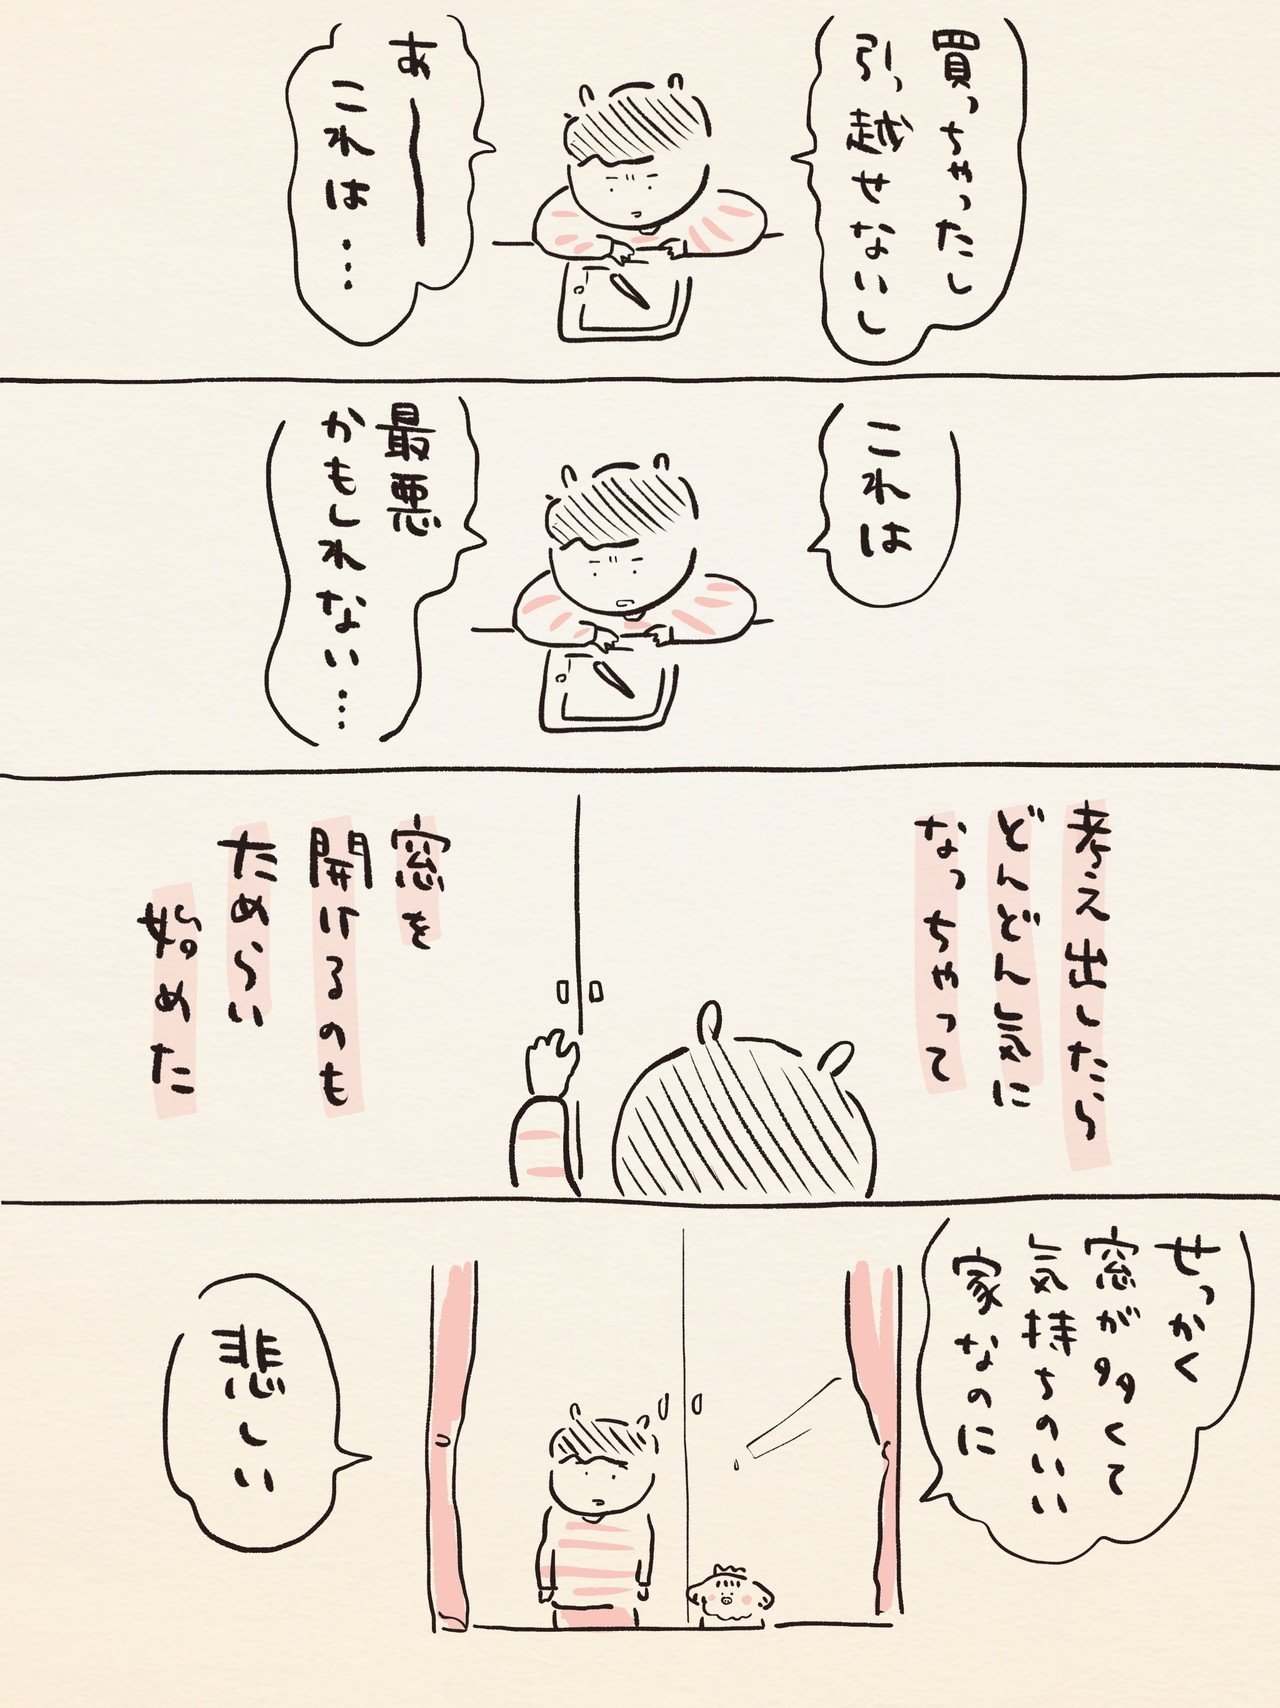 買っちゃったし
引っ越せないし
あーーー
これは…
これは
最悪
かもしれない…
考え出したら
どんどん気に
なっちゃって
窓を
開けるのも
ためらい
始めた
せっかく
窓が多くて
気持ちのいい
家なのに
悲しい